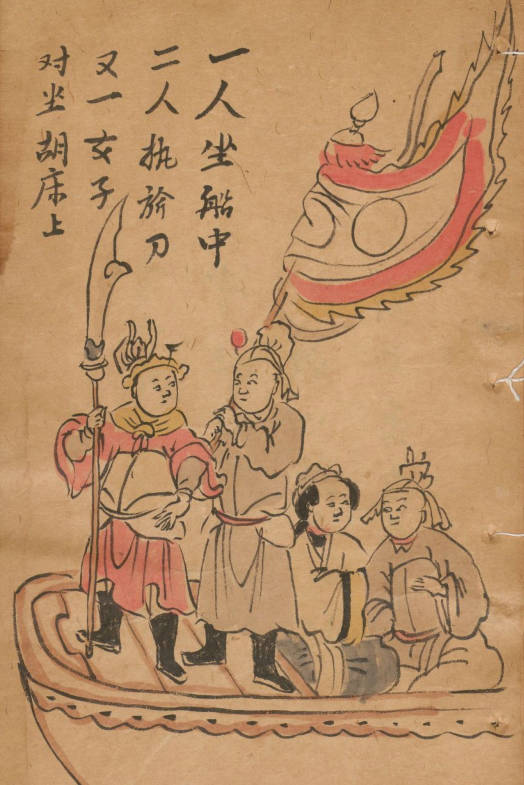 一人坐船中
二人执旂刀
又一女子
对坐胡床上